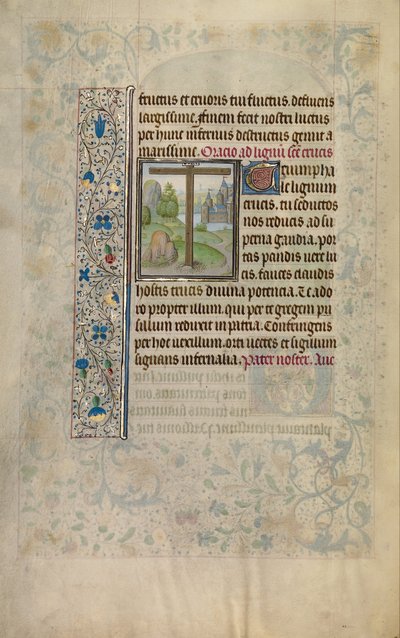 fructus et cruoris tui fluctus. defluens
largissime. finem fecit nostri luctus
per hunc infernus destructus gemit a
marissime. Oracio ad lignū sce crucis
Triumpha
le lignum
crucis. tu seductos
nos reducis ad su
perna gaudia. por
tas pandis vere lu
cis. fauces claudis
hostis trucis divina potencia. Te ado
ro propter illum. qui per te gregem pu
sillum reduxit in patria. Confringens
per hoc vexillum. orci vectes et sigillum
signans infernalia. Pater noster. Ave